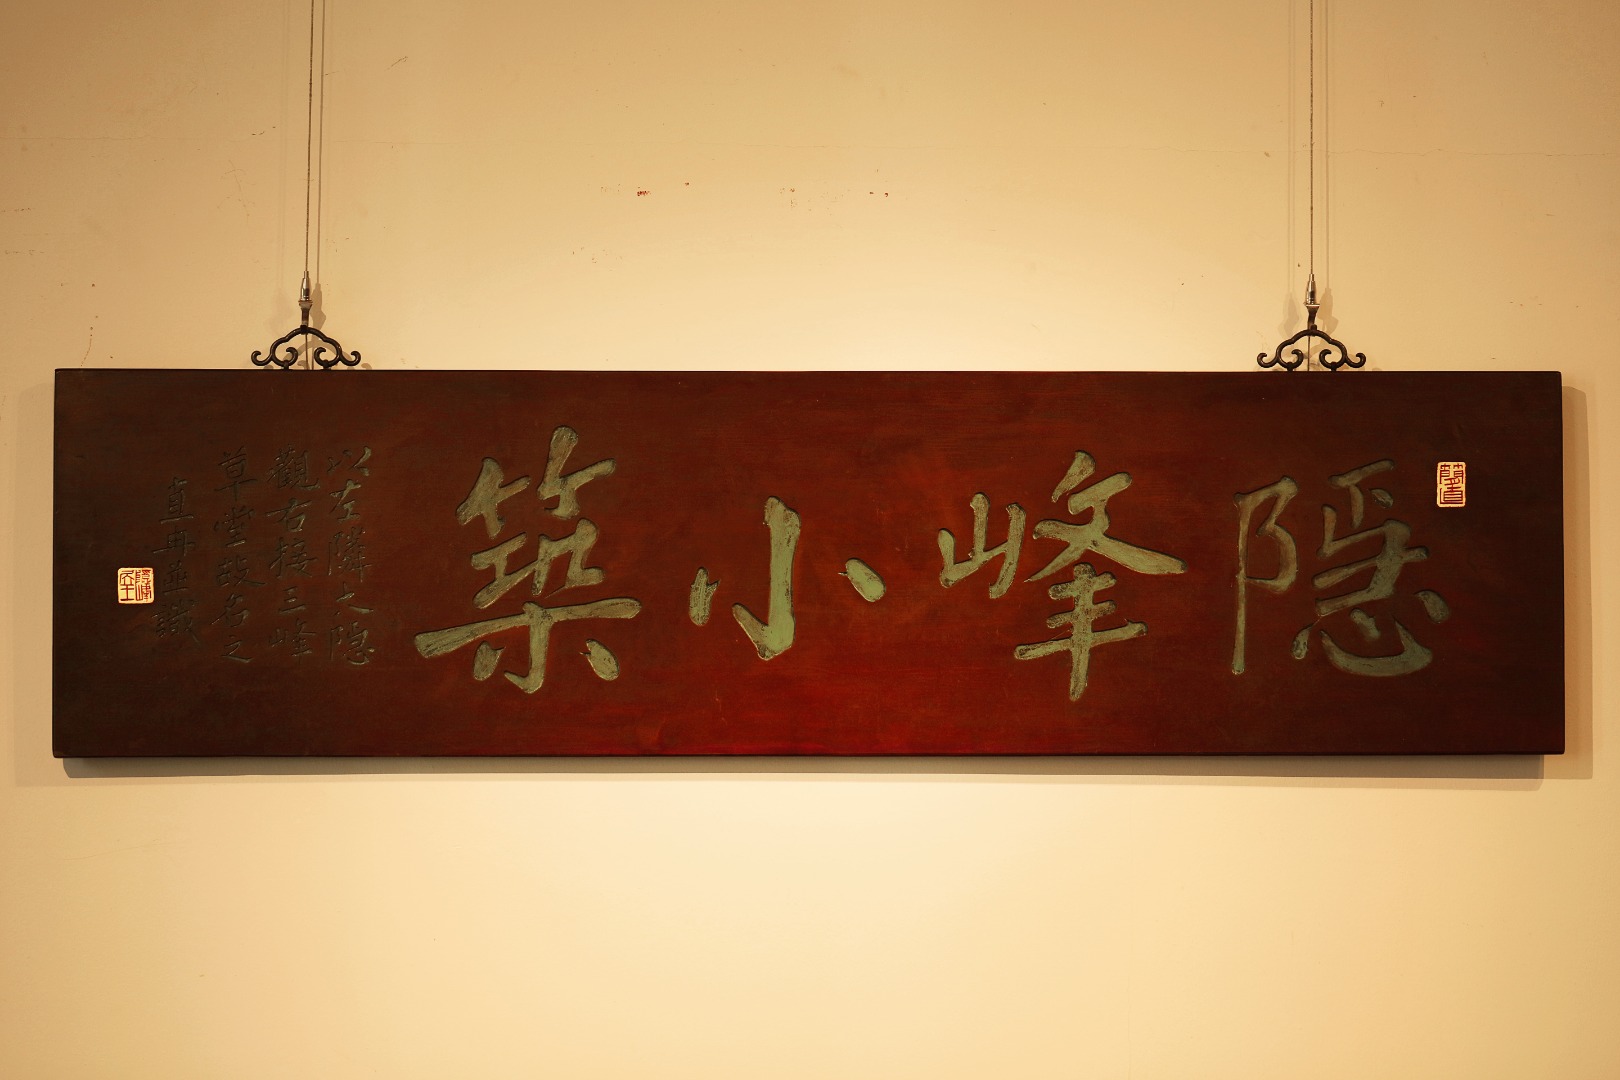 隱峰小築
以左隣大隱
觀右接三峰
草堂故名之
直冉並識